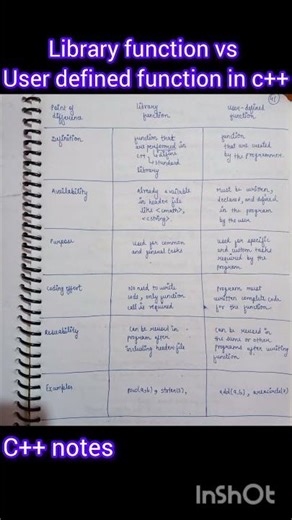 Library function vs
User defined function in c++
Point of difference
Library function
User-defined function
Definition
function that are performed in C++ standard library
function that are created by the programmer
Availability
Already available in header file like <cmath>, <string>
must be written, declared, and defined in the program by the user
Purpose
Used for common and general tasks
Used for specific and custom tasks required by the program
Coding effort
No need to write code, only function call is required
program must written complete code for the function
Reusability
Can be reused in program after including header file
Can be reused in the same or other programs after writing function
Examples
pow(a,b), strlen(s),
add(a,b), areacircle(r)
C++ notes
InShOt